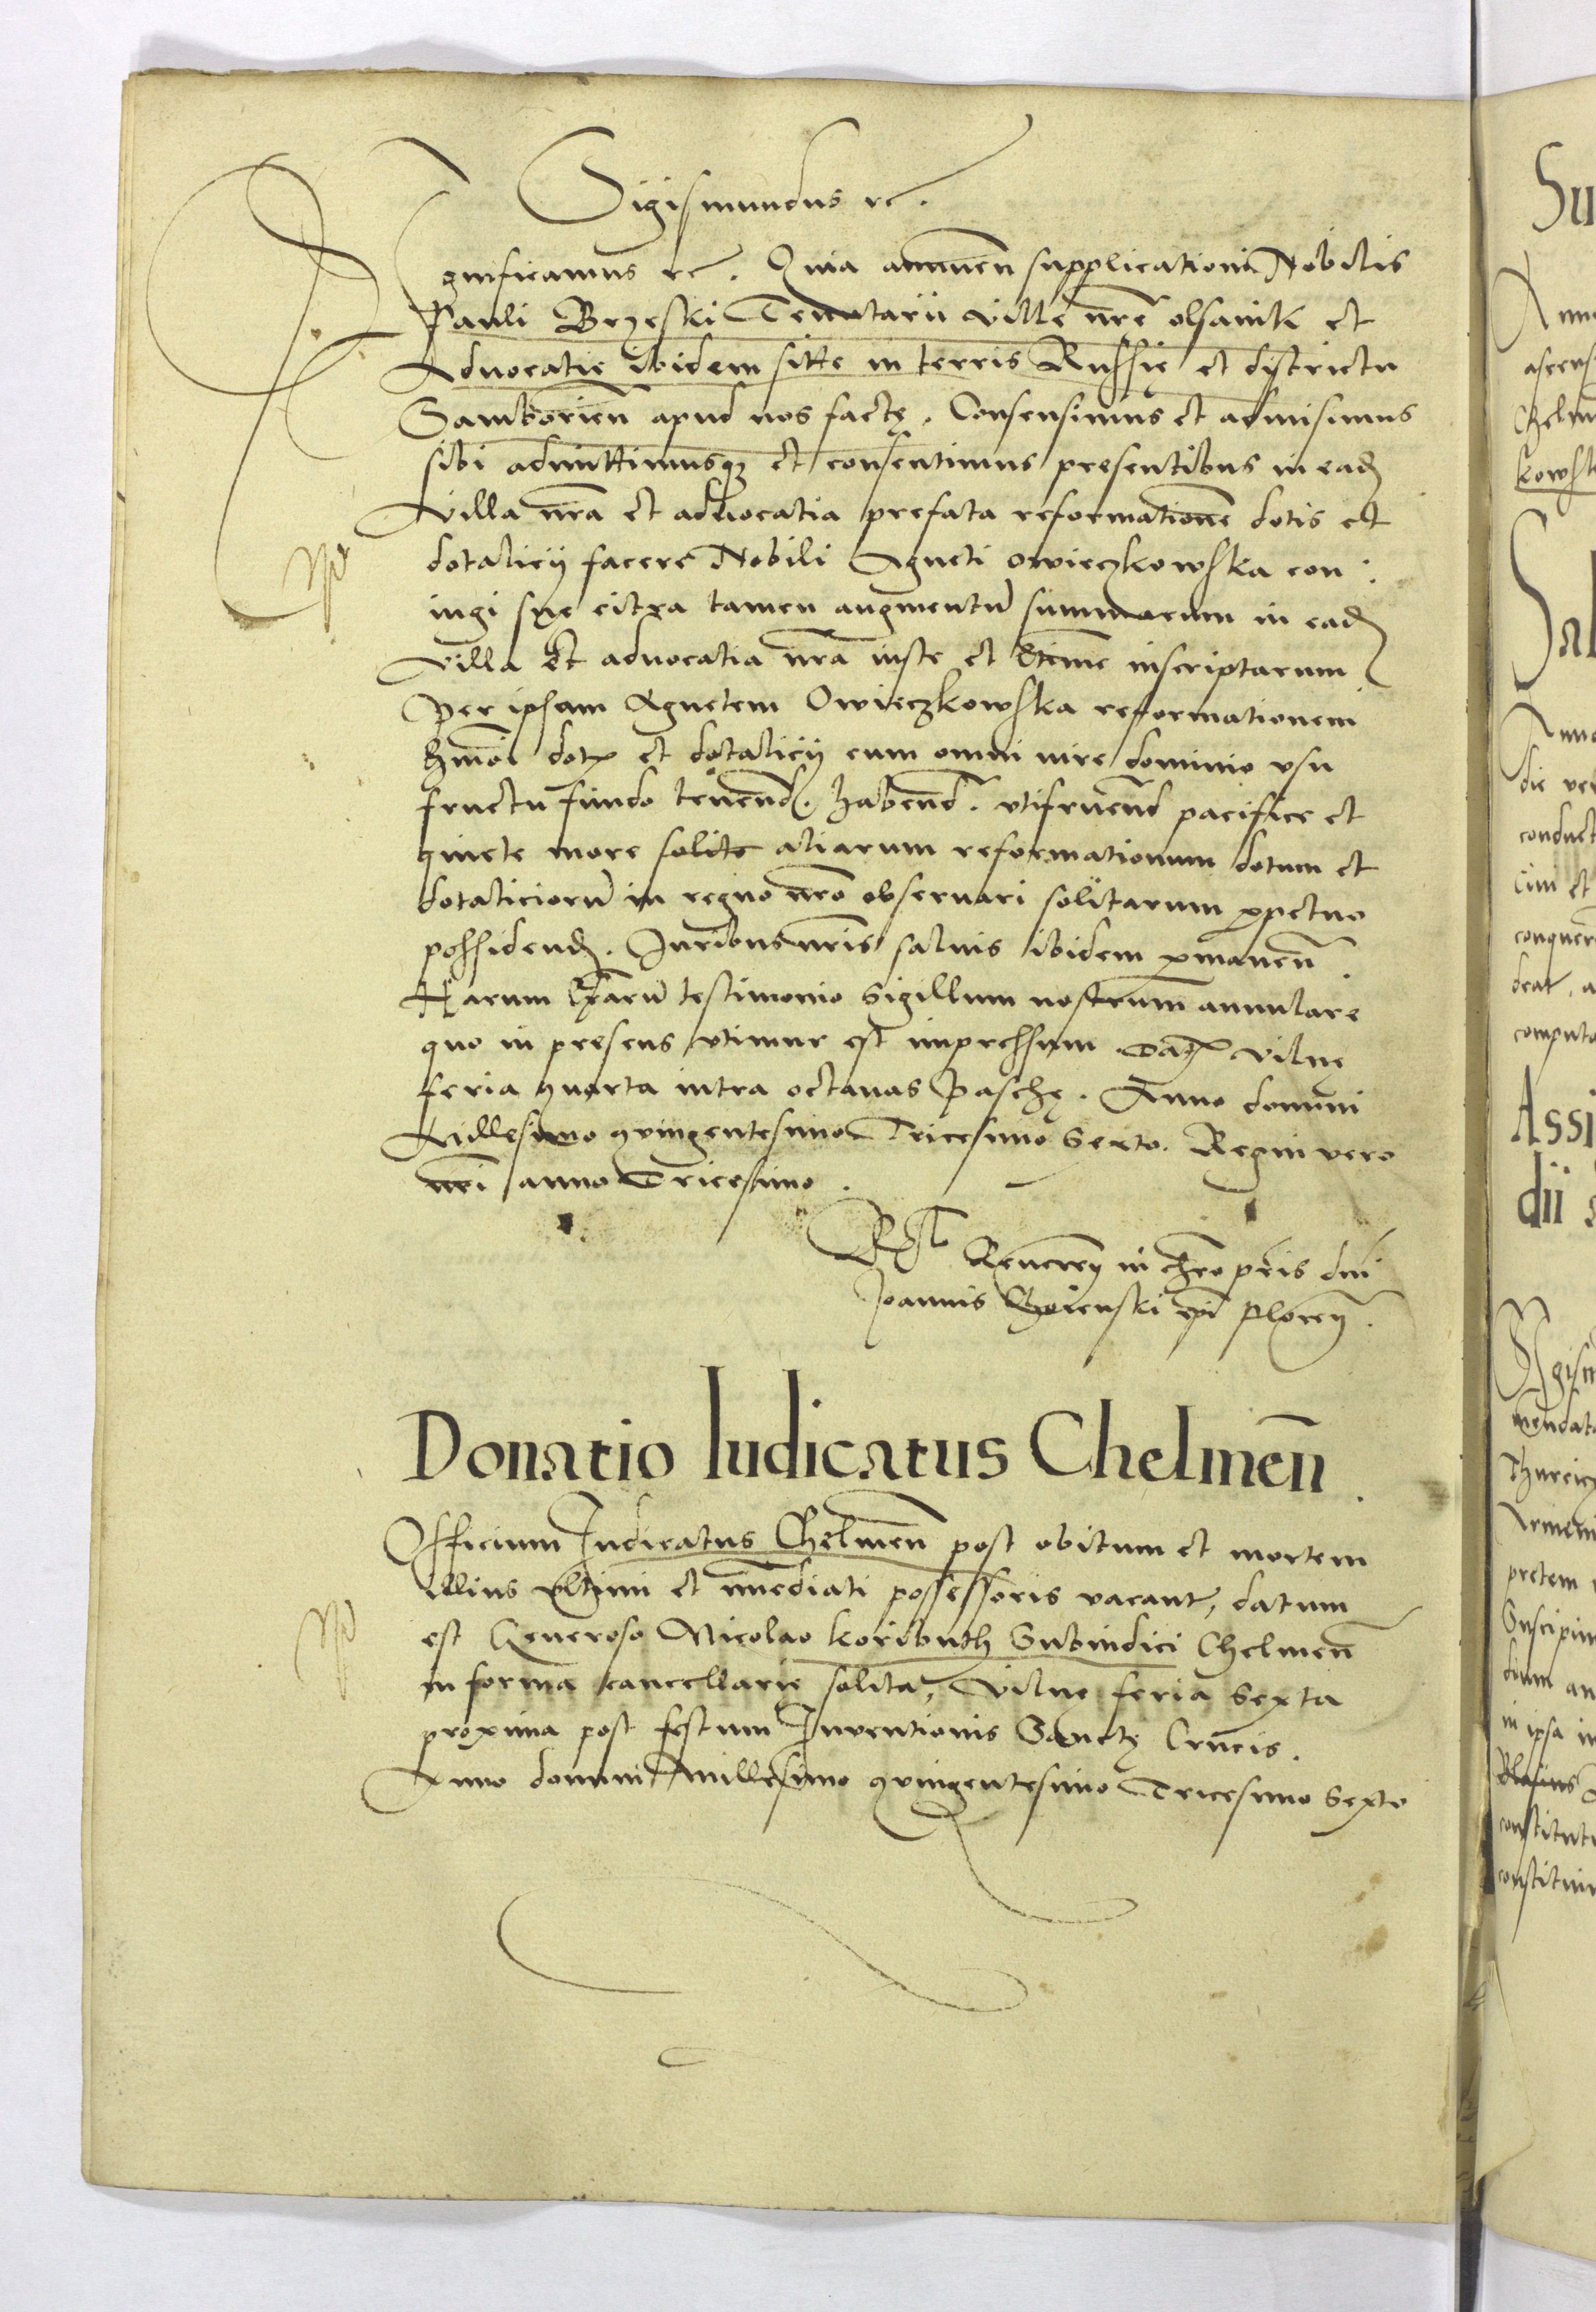 Sigismundus rc.
Significamus rc. Quia annuen̄ supplicationi Nobilis
Pauli Brzeski Tenutarii ville nrē olsanik et
Advocatie ibidem sitte in terris Russię et districtu
Samborien̄ apud nos factę. Consensimus et admisimus
sibi admittimusq₃ et consentimus presentibus in ead
villa nrā et advocatia prefata reformationem dotis et
dotalicij facere Nobili Agneti Owieczkowska con:
iugi suę citra tamen augmentū summarum in ead
villa et advocatia nrā iuste et ltīme inscriptarum
Per ipsam Agnetem Owieczkowska reformationem
hmōi dot et dotalicij cum omni iure dominio usu
fructu fundo tenend. habend. utifruend pacifice et
quiete more solito aliarum reformationum dotum et
dotaliciorū in regno nrō observari solitarum ꝑpetuo
possidend. Iuribus nrīs salvis ibidem ꝑmanen̄.
Harum lrārū testimonio Sigillum nostrum annulare
quo in presens utimur est impressum. Dat Vilnę
feria quarta intra octavas Paschę. Anno domini
Millesimo quingentesimo Tricesimo Sexto. Regni vero
nrī anno Tricesimo.
Rel Reveren in chrō prīs dnī
Joannis Choienski epī Plocen.
Donatio Iudicatus Chelmen̄.
Officium Iudicatus Chelmen̄ post obitum et mortem
illius ultimi et immediati possessoris vacant, datum
est Generoso Nicolao Koributh Subiudici Chelmen̄
in forma cancellarię solita, Vilnę feria Sexta
proxima post festum Inventionis Sanctę Crucis.
Anno domini Millesimo quingentesimo Tricesimo Sexto
Su
Anno
ascens
Chelm
kowsk
Sal
Anno
die ve
conduct
cim et
conquer
deat, a
computa
Assi
dii
Sigism
mendat
pretem
Suscipim
dium an
in ipsa in
Blasius
constitut
constitui